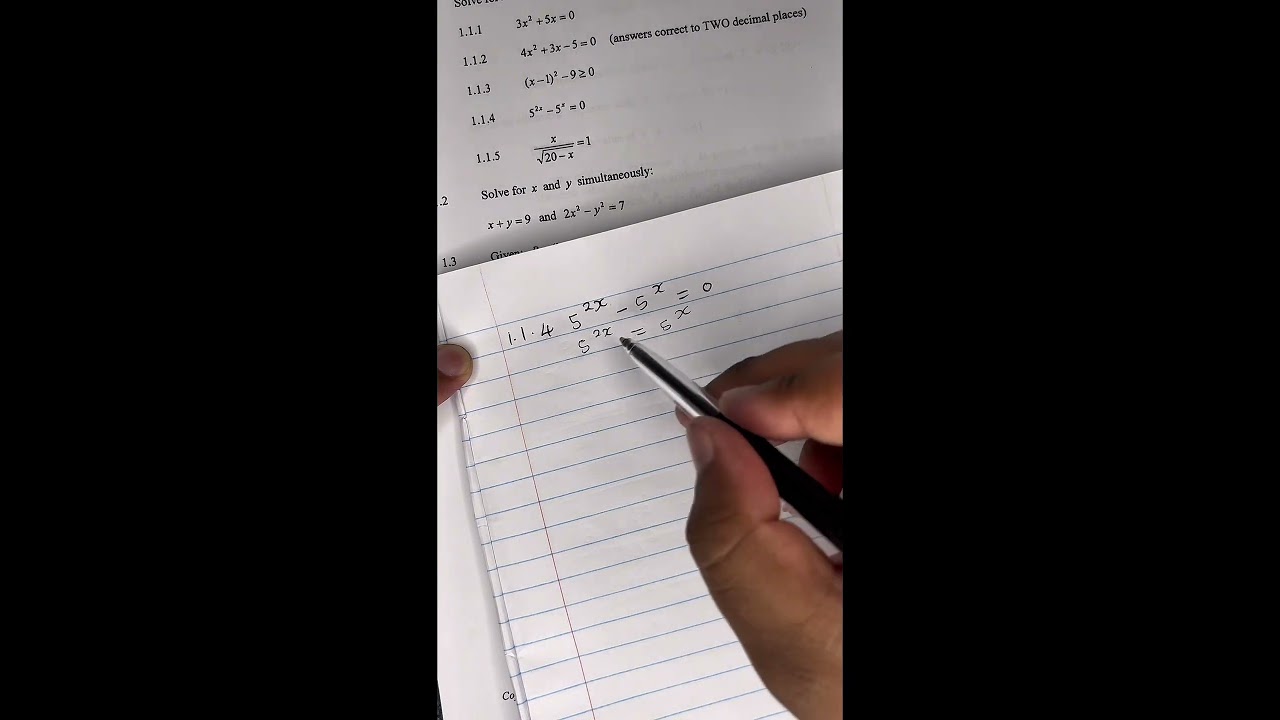 Solve for
1.1.1 3x² + 5x = 0
1.1.2 4x² + 3x − 5 = 0 (answers correct to TWO decimal places)
1.1.3 (x − 1)² − 9 ≥ 0
1.1.4 5²ˣ − 5ˣ = 0
1.1.5 x/√(20 − x) = 1
.2 Solve for x and y simultaneously:
x + y = 9 and 2x² − y² = 7
1.3 Given:
1.1.4 5²ˣ − 5ˣ = 0
5²ˣ = 5ˣ
Co